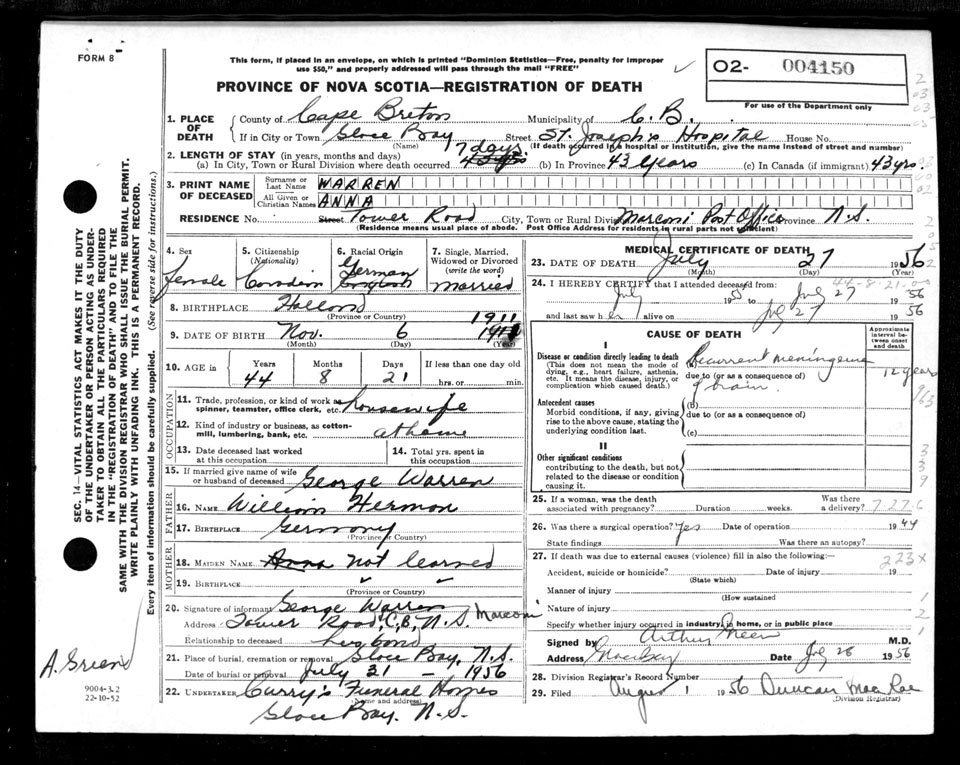 FORM 8
This form, if placed in an envelope, on which is printed "Dominion Statistics—Free, penalty for improper
use $50," and properly addressed will pass through the mail "FREE"
O2- 004150
For use of the Department only
PROVINCE OF NOVA SCOTIA—REGISTRATION OF DEATH
1. PLACE OF DEATH
County of Cape Breton Municipality of C.B.
If in City or Town Glace Bay Street St. Joseph's Hospital House No.
(Name) (If death occurred in a hospital or institution, give the name instead of street and number)
2. LENGTH OF STAY (in years, months and days)
(a) In City, Town or Rural Division where death occurred 17 days (b) In Province 43 years (c) In Canada (if immigrant) 43 yrs.
3. PRINT NAME OF DECEASED
Surname or Last Name WARREN
All Given or Christian Names ANNA
RESIDENCE No. Street Tower Road City, Town or Rural Division Marconi Post Office Province N.S.
(Residence means usual place of abode. Post Office Address for residents in rural parts not sufficient)
4. Sex
female
5. Citizenship
(Nationality)
Canadian
6. Racial Origin
German
7. Single, Married, Widowed or Divorced
(write the word)
married
8. BIRTHPLACE Holland
(Province or Country)
9. DATE OF BIRTH Nov. 6 1911
(Month) (Day) (Year)
10. AGE in
Years Months Days If less than one day old
44 8 21 hrs. or min.
OCCUPATION
11. Trade, profession, or kind of work as spinner, teamster, office clerk, etc. housewife
12. Kind of industry or business, as cotton-mill, lumbering, bank, etc. at home
13. Date deceased last worked at this occupation
14. Total yrs. spent in this occupation
15. If married give name of wife or husband of deceased George Warren
FATHER
16. Name William Hermon
17. Birthplace Germany
(Province or Country)
MOTHER
18. Maiden Name Anna not learned
19. Birthplace " —
(Province or Country)
20. Signature of informant George Warren
Address Tower Road, C.B., N.S. Marconi
Relationship to deceased husband
21. Place of burial, cremation or removal Glace Bay, N.S.
Date of burial or removal July 31 — 1956
22. UNDERTAKER Curry's Funeral Homes
(Name and address)
Glace Bay. N.S.
MEDICAL CERTIFICATE OF DEATH
23. DATE OF DEATH July 27 1956
(Month) (Day) (Year)
24. I HEREBY CERTIFY that I attended deceased from:
44-8-21.0
July 1955 to July 27 1956
and last saw her alive on July 27 1956
CAUSE OF DEATH
Approximate interval between onset and death
I
Disease or condition directly leading to death
(This does not mean the mode of dying, e.g., heart failure, asthenia, etc. It means the disease, injury, or complication which caused death.)
(a) Recurrent meningioma
due to (or as a consequence of)
of brain
12 years
Antecedent causes
Morbid conditions, if any, giving rise to the above cause, stating the underlying condition last.
(b)
due to (or as a consequence of)
(c)
II
Other significant conditions
contributing to the death, but not related to the disease or condition causing it.
25. If a woman, was the death associated with pregnancy? Duration weeks. Was there a delivery?
7-27-6
26. Was there a surgical operation? Yes Date of operation 1944
State findings Was there an autopsy?
27. If death was due to external causes (violence) fill in also the following:—
223x
Accident, suicide or homicide? Date of injury 19
(State which)
Manner of injury
(How sustained)
Nature of injury
Specify whether injury occurred in industry, in home, or in public place
Signed by Arthur Green M.D.
Address Glace Bay Date July 28 1956
28. Division Registrar's Record Number
29. Filed August 1 1956 Duncan MacRae
(Division Registrar)
SEC. 14—VITAL STATISTICS ACT MAKES IT THE DUTY
OF THE UNDERTAKER OR PERSON ACTING AS UNDER-
TAKER TO OBTAIN ALL THE PARTICULARS REQUIRED
IN THE "REGISTRATION OF DEATH" AND TO FILE THE
SAME WITH THE DIVISION REGISTRAR WHO SHALL ISSUE THE BURIAL PERMIT.
WRITE PLAINLY WITH UNFADING INK. THIS IS A PERMANENT RECORD.
Every item of information should be carefully supplied. (See reverse side for instructions.)
9004-3.2
22-10-52